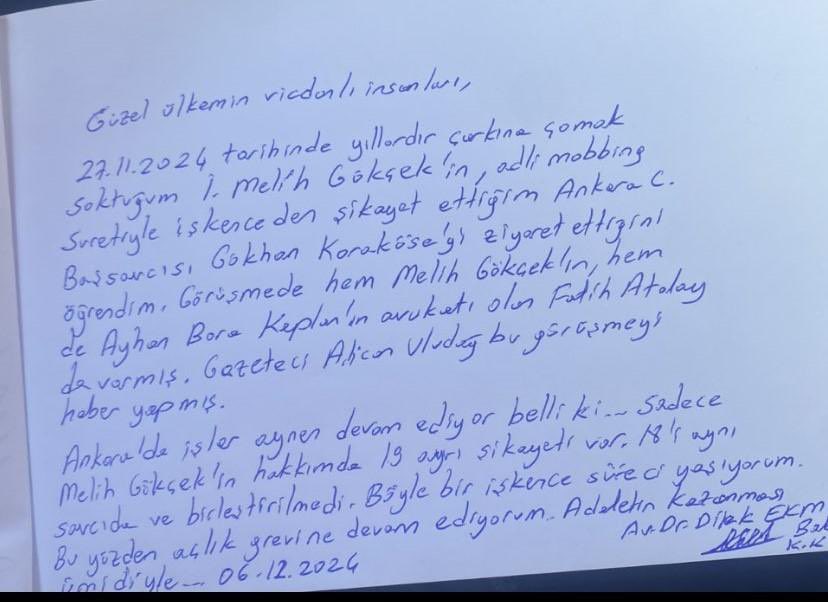 Güzel ülkemin vicdanlı insanları,
27.11.2024 tarihinde yıllardır çarkına çomak
soktuğum İ. Melih Gökçek'in, adli mobbing
suretiyle işkenceden şikayet ettiğim Ankara C.
Başsavcısı Gökhan Karaköse'yi ziyaret ettiğini
öğrendim. Görüşmede hem Melih Gökçek'in, hem
de Ayhan Bora Kaplan'ın avukatı olan Fatih Atalay
da varmış. Gazeteci Alican Uludağ bu görüşmeyi
haber yapmış.
Ankara'da işler aynen devam ediyor belli ki... Sadece
Melih Gökçek'in hakkımda 19 ayrı şikayeti var. 18'i aynı
savcıda ve birleştirilmedi. Böyle bir işkence süreci yaşıyorum.
Bu yüzden açlık grevine devam ediyorum. Adaletin kazanması
ümidiyle... 06.12.2024
Av. Dr. Dilek EKM
K.K